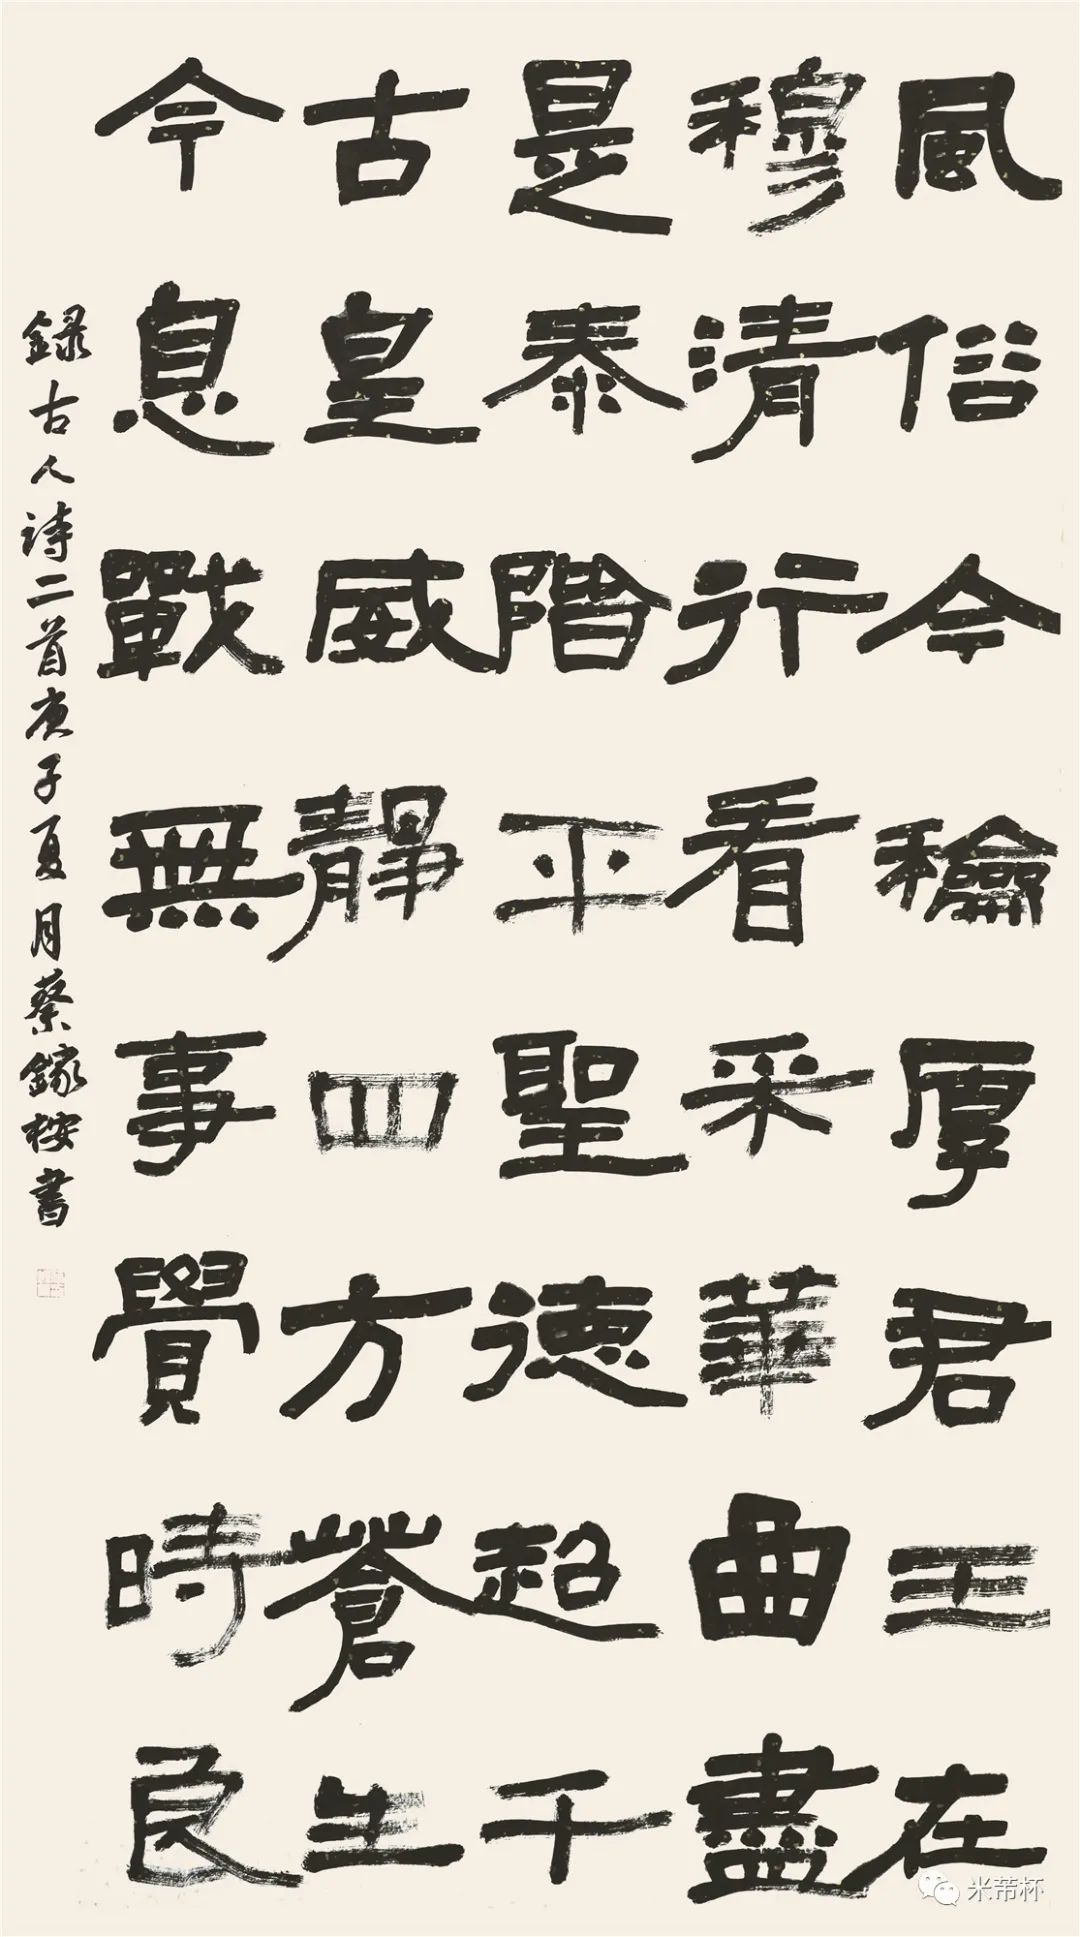 風俗今龢厚君王在
穆清行看采華曲盡
是泰階平聖德超千
古皇威靜四方蒼生
今息戰無事覺時良
録古人詩二首庚子夏月蔡鎵桉書
米芾杯